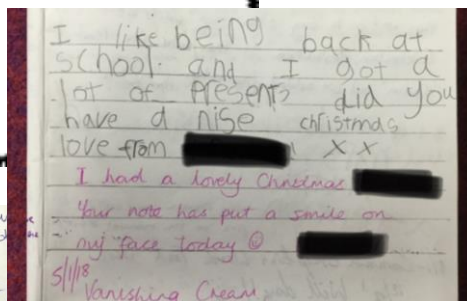 I like being back at
school. and I got a
lot of presents did you
have a nise christmas
love from x x
I had a lovely Christmas
Your note has put a smile on
my face today ☺
5/1/18
Vanishing Cream